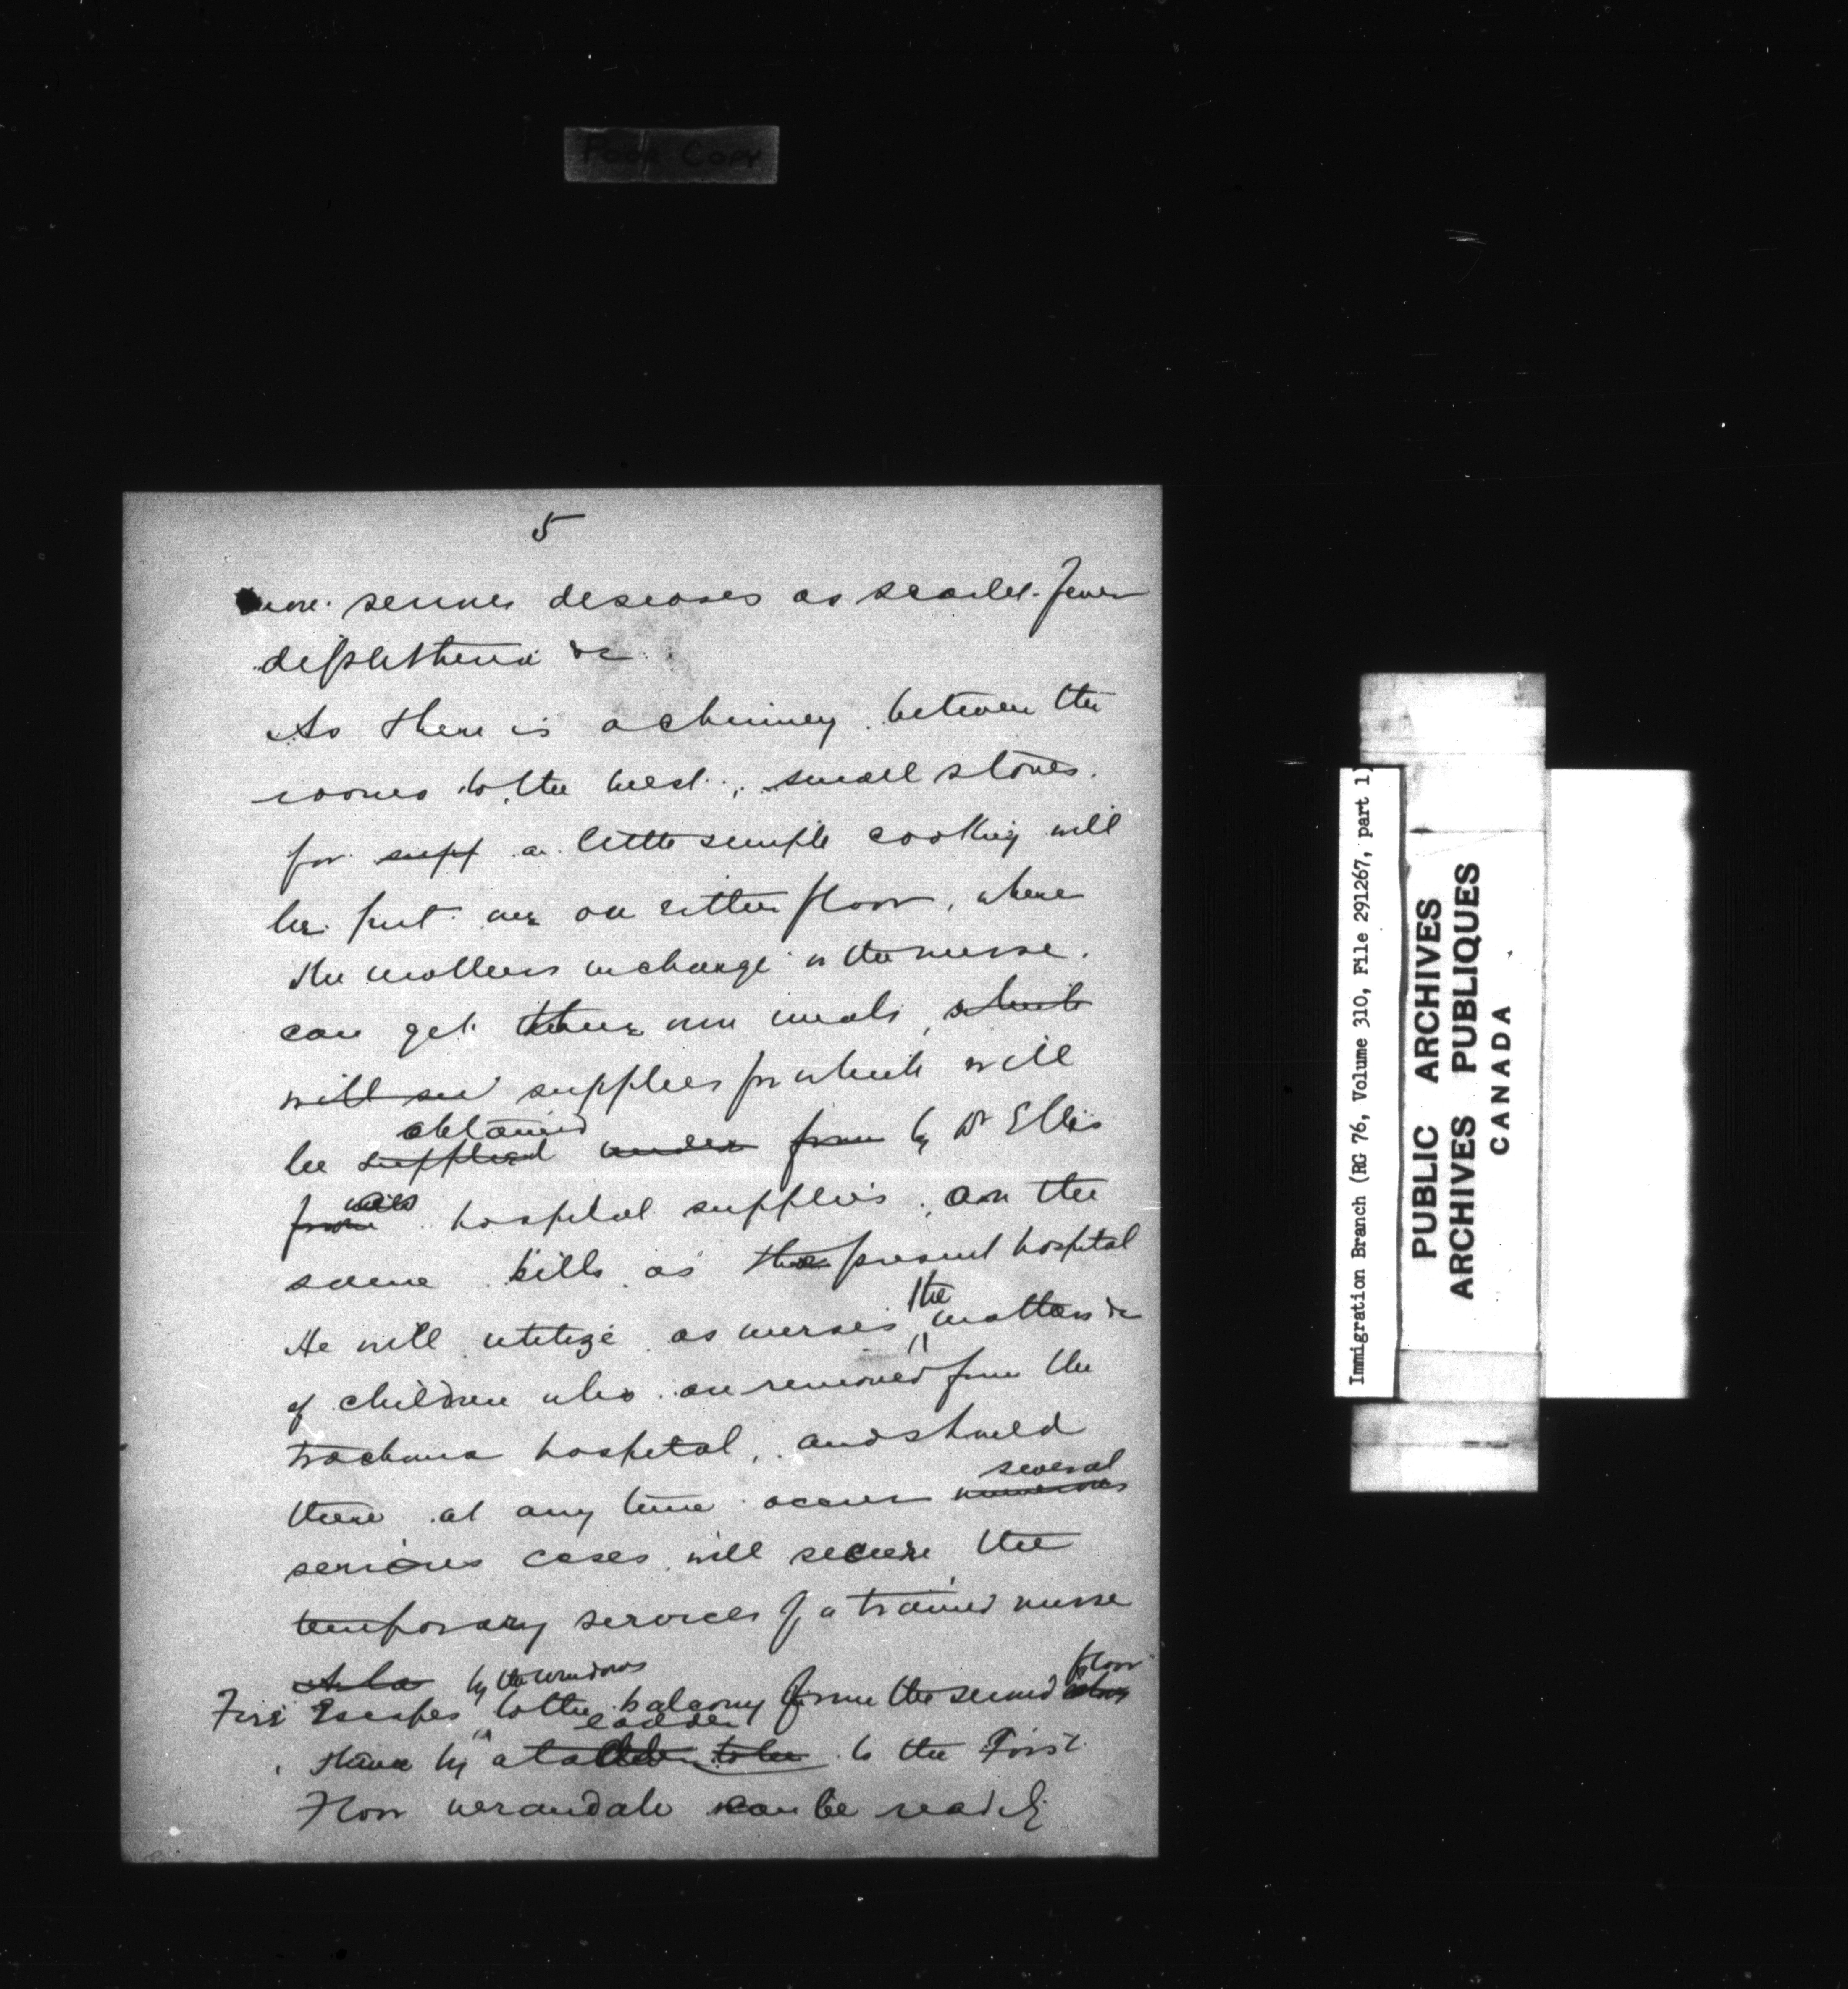 Poor Copy
5
more serious diseases as scarlet fever
diphtheria &c
As there is a chimney between the
rooms to the west, small stoves
for supp a little simple cooking will
be put on either floor, where
the mothers in charge or the nurse
can get their own meals, which
will see supplies for which will
obtained
be supplied under from by Dr Ellis
from as hospital supplies, on the
same bills as the present hospital
the
He will utilize as nurses mothers &c
of children who are removed from the
trachoma hospital, and should
several
there at any time occur numerous
serious cases will secure the
temporary services of a trained nurse
by the windows floor
Fire Escapes to the balcony from the second story
ladder
thence by a to be to the First
Floor verandah can be readily
Immigration Branch (RG 76, Volume 310, File 291267, part 1)
PUBLIC ARCHIVES
ARCHIVES PUBLIQUES
CANADA